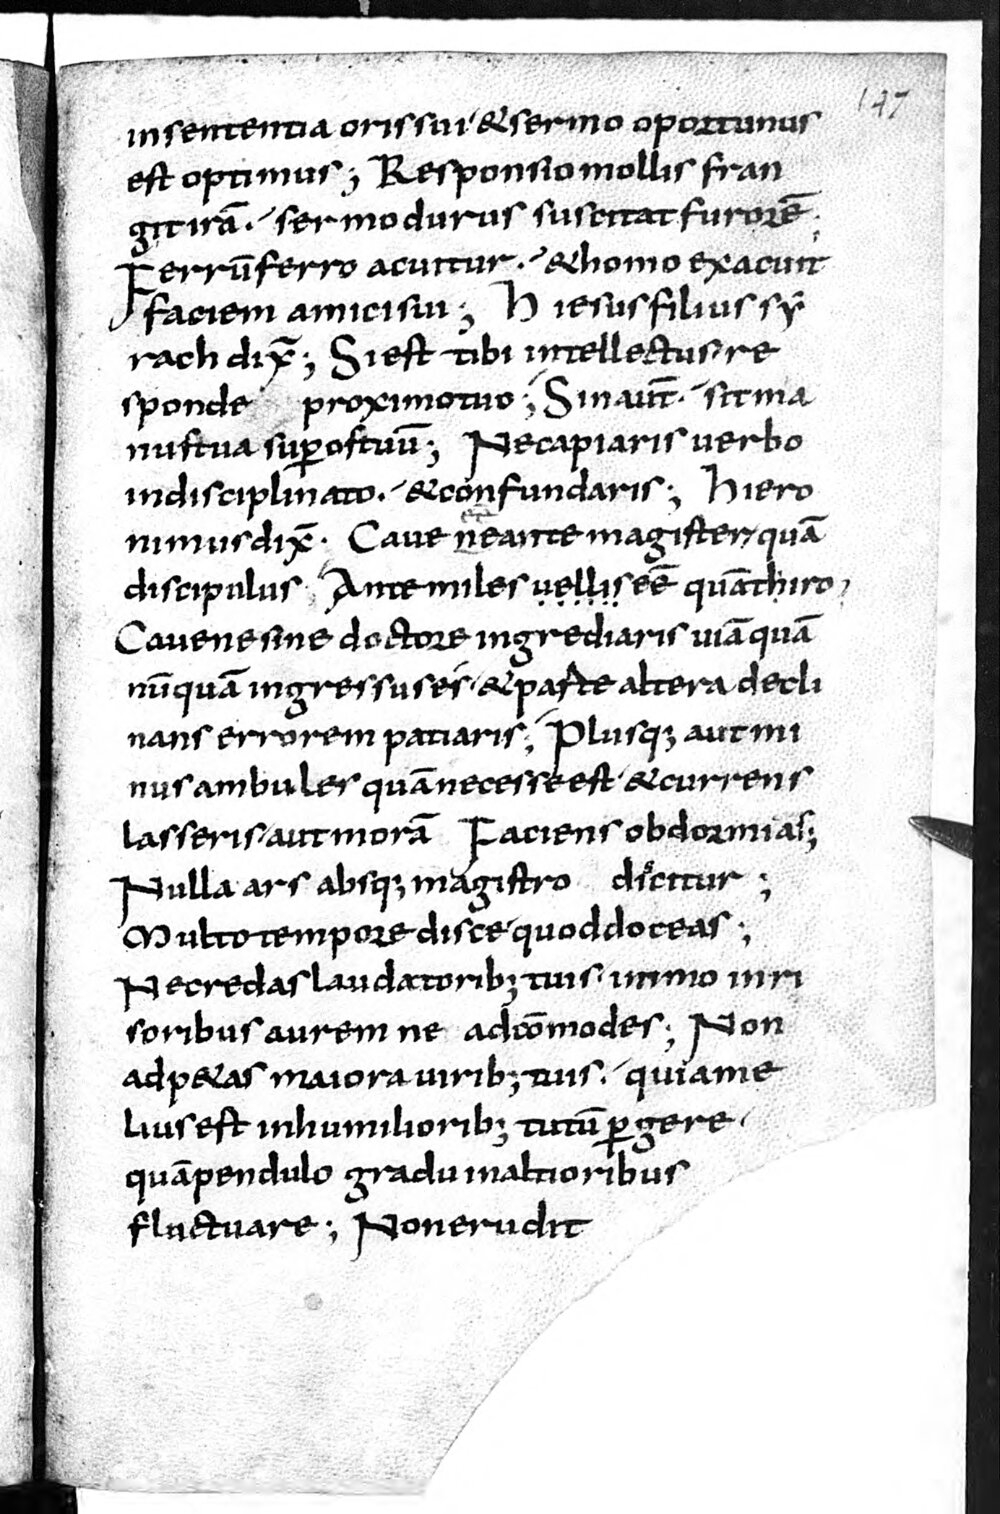 147
in sententia oris sui · & sermo oportunus
est optimus; Responsio mollis fran
git irā · sermo durus suscitat furorē;
Ferrū ferro acuitur · & homo exacuit
faciem amici sui; Hiesus filius sy
rach dix̄; Si est tibi intellectus re
sponde proximo tuo; Sin aut̄ · sit ma
nus tua sup̱ os tuū; Ne capiaris verbo
indisciplinato · & confundaris; Hiero
nimus dix̄ · Cave ne ante magister quā
discipulus · Ante miles vellis eē quā thiro,
Cave ne sine doctore ingrediaris viā quā
nūquā ingressus es · & paste altera decli
nans errorem patiaris; Plusq; aut mi
nus ambules quā necesse est · & currens
lasseris · aut morā Faciens obdormias;
Nulla ars absq; magistro dicitur;
Multo tempore disce quod doceas;
Ne credas laudatorib; tuis · immo inri
soribus aurem ne adcōmodes; Non
adp&as maiora virib; tuis · quia me
lius est in humiliorib; tutū p̱gere ·
quā pendulo gradu in altioribus
fluctuare; Non erudit